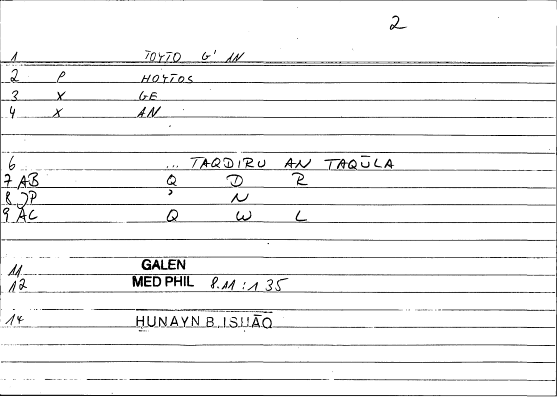 2
1 TOYTO G' AN
2 P HOYTOS
3 X GE
4 X AN
6 ... TAQDIRU AN TAQŪLA
7 AB Q D R
8 JP ' N
9 AC Q W L
11 GALEN
12 MED PHIL 8.11:1 35
14 HUNAYN B. ISḤĀQ